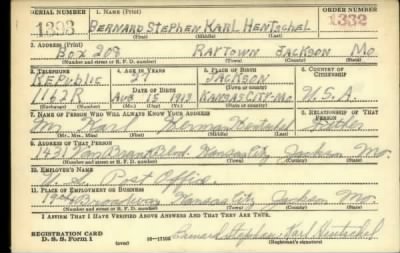 SERIAL NUMBER 1. NAME (Print) ORDER NUMBER
1393 BERNARD STEPHEN KARL HENTSCHEL 1332
(First) (Middle) (Last)
2. ADDRESS (Print)
BOX 208 RAYTOWN JACKSON MO
(Number and street or R. F. D. number) (Town) (County) (State)
3. TELEPHONE 4. AGE IN YEARS 5. PLACE OF BIRTH 6. COUNTRY OF CITIZENSHIP
REPublic JACKSON
DATE OF BIRTH (Town or county)
1162R Aug 15 1913 KANSAS CITY-Mo U.S.A.
(Exchange) (Number) (Mo.) (Day) (Yr.) (State or country)
7. NAME OF PERSON WHO WILL ALWAYS KNOW YOUR ADDRESS 8. RELATIONSHIP OF THAT PERSON
Mr. Karl Herman Hentschel Father
(Mr., Mrs., Miss) (First) (Middle) (Last)
9. ADDRESS OF THAT PERSON
1431 Van Brunt Blvd. Kansas City Jackson Mo.
(Number and street or R. F. D. number) (Town) (County) (State)
10. EMPLOYER'S NAME
U. S. Post Office.
11. PLACE OF EMPLOYMENT OR BUSINESS
19th Broadway Kansas City Jackson Mo.
(Number and street or R. F. D. number) (Town) (County) (State)
I AFFIRM THAT I HAVE VERIFIED ABOVE ANSWERS AND THAT THEY ARE TRUE.
REGISTRATION CARD
D. S. S. FORM 1 (over) Bernard Stephen Karl Hentschel
(Registrant's signature)